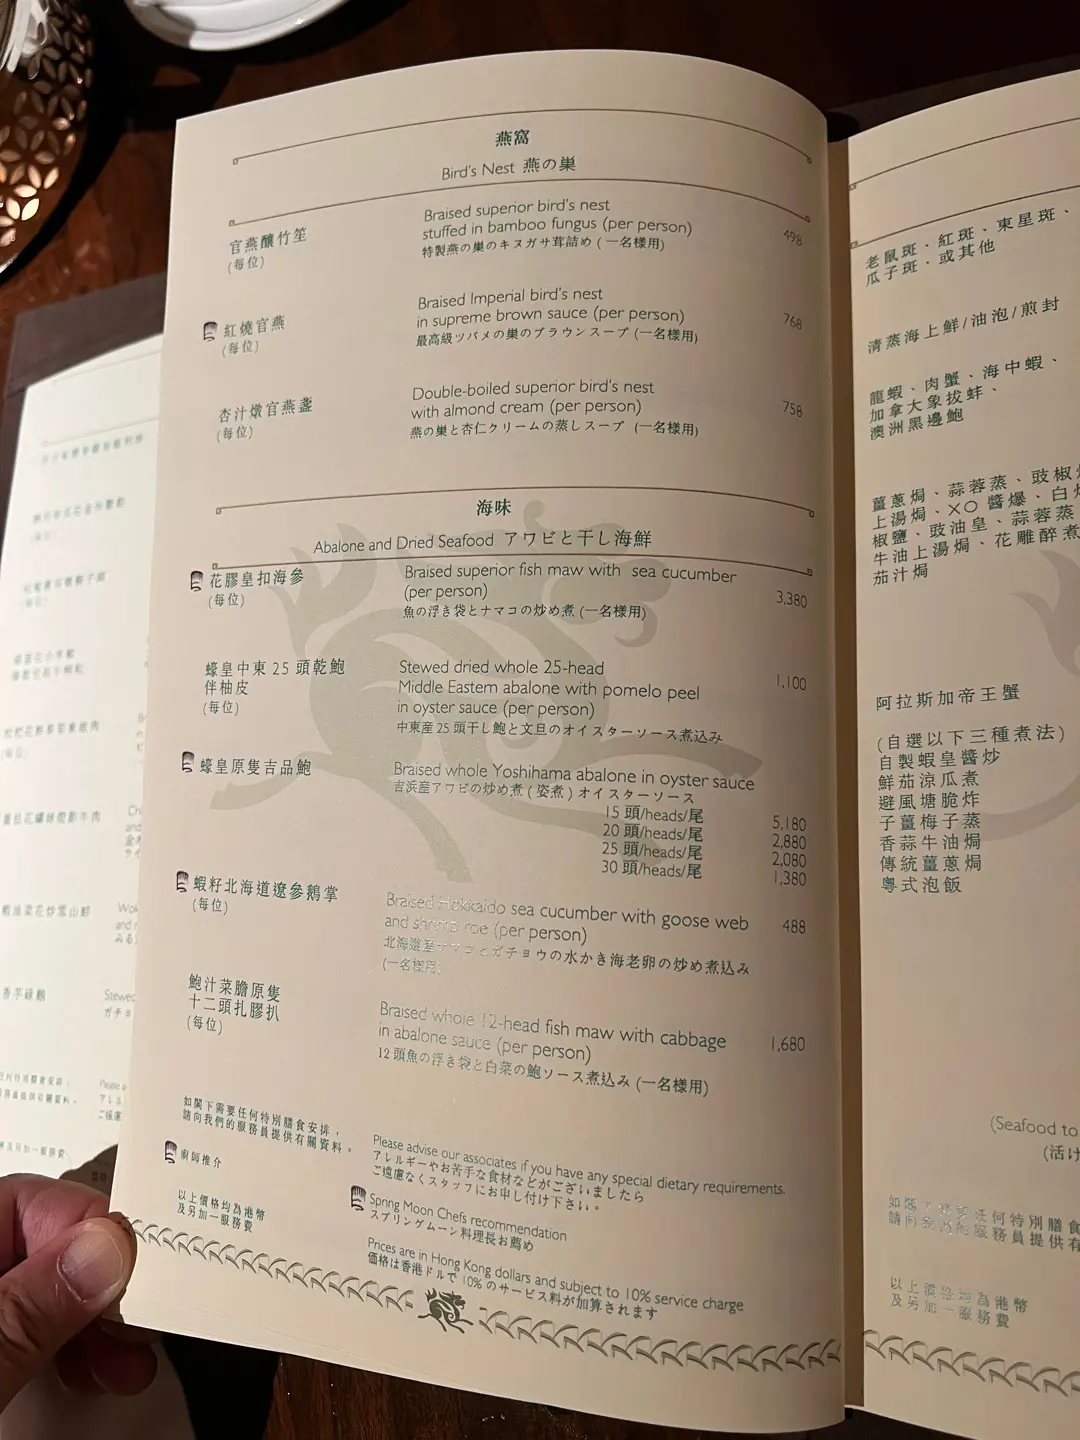 燕窩
Bird's Nest 燕の巣
官燕釀竹笙
(每位)
Braised superior bird's nest
stuffed in bamboo fungus (per person)
特製燕の巣のキヌガサ茸詰め (一名様用)
498
紅燒官燕
(每位)
Braised Imperial bird's nest
in supreme brown sauce (per person)
最高級ツバメの巣のブラウンスープ (一名様用)
768
杏汁燉官燕盞
(每位)
Double-boiled superior bird's nest
with almond cream (per person)
燕の巣と杏仁クリームの蒸しスープ (一名様用)
758
海味
Abalone and Dried Seafood アワビと干し海鮮
花膠皇扣海參
(每位)
Braised superior fish maw with sea cucumber
(per person)
魚の浮き袋とナマコの炒め煮 (一名様用)
3,380
蠔皇中東 25 頭乾鮑
伴柚皮
(每位)
Stewed dried whole 25-head
Middle Eastern abalone with pomelo peel
in oyster sauce (per person)
中東産 25 頭干し鮑と文旦のオイスターソース煮込み
1,100
蠔皇原隻吉品鮑
Braised whole Yoshihama abalone in oyster sauce
吉浜産アワビの炒め煮 (姿煮) オイスターソース
15 頭/heads/尾 5,180
20 頭/heads/尾 2,880
25 頭/heads/尾 2,080
30 頭/heads/尾 1,380
蝦籽北海道遼參鵝掌
(每位)
Braised Hokkaido sea cucumber with goose web
and shrimp roe (per person)
北海道産ナマコとガチョウの水かき海老卵の炒め煮込み
(一名様用)
488
鮑汁菜膽原隻
十二頭扎膠扒
(每位)
Braised whole 12-head fish maw with cabbage
in abalone sauce (per person)
12 頭魚の浮き袋と白菜の鮑ソース煮込み (一名様用)
1,680
如閣下需要任何特別膳食安排，
請向我們的服務員提供有關資料。
Please advise our associates if you have any special dietary requirements.
アレルギーやお苦手な食材などがございましたら
ご遠慮なくスタッフにお申し付け下さい。
廚師推介
Spring Moon Chefs recommendation
スプリングムーン料理長お薦め
以上價格均為港幣
及另加一服務費
Prices are in Hong Kong dollars and subject to 10% service charge
価格は香港ドルで 10% のサービス料が加算されます
老鼠斑、紅斑、東星斑、
瓜子斑、或其他
清蒸海上鮮/油泡/煎封
龍蝦、肉蟹、海中蝦、
加拿大象拔蚌、
澳洲黑邊鮑
薑蔥焗、蒜蓉蒸、豉椒
上湯焗、XO 醬爆、白
椒鹽、豉油皇、蒜蓉蒸
牛油上湯焗、花雕醉煮
茄汁焗
阿拉斯加帝王蟹
(自選以下三種煮法)
自製蝦皇醬炒
鮮茄涼瓜煮
避風塘脆炸
子薑梅子蒸
香蒜牛油焗
傳統薑蔥焗
粵式泡飯
(Seafood to
(活け
如閣下需要任何特別膳食
請向我們的服務員提供有
以上價格均為港幣
及另加一服務費